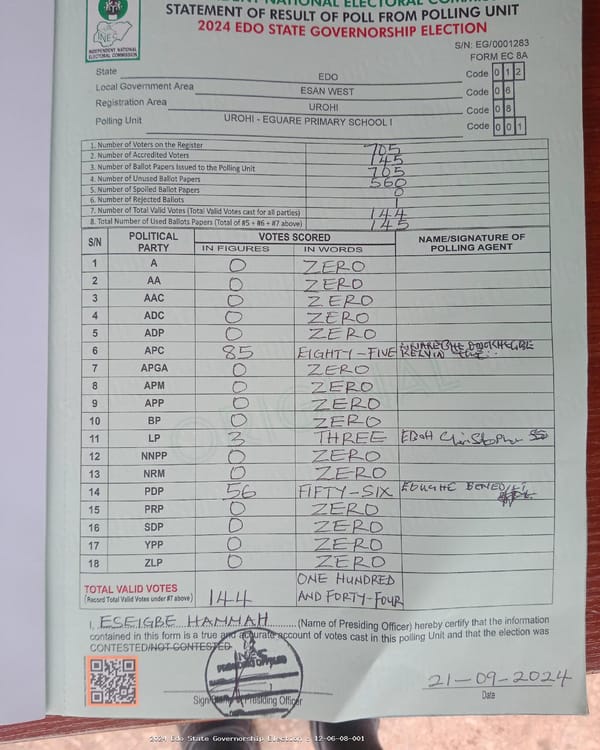 INDEPENDENT NATIONAL ELECTORAL COMMISSION
STATEMENT OF RESULT OF POLL FROM POLLING UNIT
2024 EDO STATE GOVERNORSHIP ELECTION
INEC
INDEPENDENT NATIONAL
ELECTORAL COMMISSION
S/N: EG/0001283
FORM EC 8A
State EDO Code 0 1 2
Local Government Area ESAN WEST Code 0 6
Registration Area UROHI Code 0 8
Polling Unit UROHI - EGUARE PRIMARY SCHOOL I Code 0 0 1
1. Number of Voters on the Register 705
2. Number of Accredited Voters 145
3. Number of Ballot Papers Issued to the Polling Unit 705
4. Number of Unused Ballot Papers 560
5. Number of Spoiled Ballot Papers 0
6. Number of Rejected Ballots 1
7. Number of Total Valid Votes (Total Valid Votes cast for all parties) 144
8. Total Number of Used Ballots Papers (Total of #5 + #6 + #7 above) 145
S/N POLITICAL PARTY VOTES SCORED NAME/SIGNATURE OF POLLING AGENT
IN FIGURES IN WORDS
1 A 0 ZERO
2 AA 0 ZERO
3 AAC 0 ZERO
4 ADC 0 ZERO
5 ADP 0 ZERO
6 APC 85 EIGHTY-FIVE KELVIN
7 APGA 0 ZERO
8 APM 0 ZERO
9 APP 0 ZERO
10 BP 0 ZERO
11 LP 3 THREE EBOH Christopher
12 NNPP 0 ZERO
13 NRM 0 ZERO
14 PDP 56 FIFTY-SIX
15 PRP 0 ZERO
16 SDP 0 ZERO
17 YPP 0 ZERO
18 ZLP 0 ZERO
ORIGINAL
TOTAL VALID VOTES 144 ONE HUNDRED
(Record Total Valid Votes under #7 above) AND FORTY-FOUR
I, ESEIGBE HANNAH (Name of Presiding Officer) hereby certify that the information
contained in this form is a true and accurate account of votes cast in this polling Unit and that the election was
CONTESTED/NOT CONTESTED
INEC
PRESIDING OFFICER
Signature of Presiding Officer
21-09-2024
Date
2024 Edo State Governorship Election - 12-06-08-001